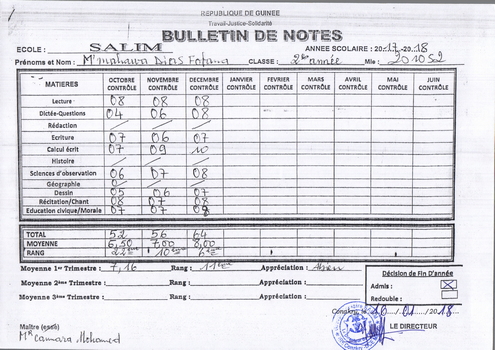 REPUBLIQUE DE GUINEE
Travail-Justice-Solidarité
BULLETIN DE NOTES
ECOLE : SALIM ANNEE SCOLAIRE : 2017-2018
Prénoms et Nom : M'mahawa Dias Fofana CLASSE : 2ème année Mle : 201052
MATIERES OCTOBRE CONTRÔLE NOVEMBRE CONTRÔLE DECEMBRE CONTRÔLE JANVIER CONTRÔLE FEVRIER CONTRÔLE MARS CONTRÔLE AVRIL CONTRÔLE MAI CONTRÔLE JUIN CONTRÔLE
Lecture 08 08 08
Dictée-Questions 04 06 08
Rédaction / / /
Ecriture 07 06 07
Calcul écrit 07 09 10
Histoire / / /
Sciences d'observation 06 07 08
Géographie / /
Dessin 05 06 07
Récitation/Chant 08 07 08
Education civique/Morale 07 07 08
TOTAL 52 56 64
MOYENNE 6,50 7,00 8,00
RANG 22ème 10ème
Moyenne 1er Trimestre : 7,16 Rang : 11ème Appréciation :
Moyenne 2ème Trimestre : Rang : Appréciation :
Moyenne 3ème Trimestre : Rang : Appréciation :
Décision de Fin D'année
Admis : X
Redouble :
Conakry, le 10/01/2018
Maître (esse)
LE DIRECTEUR
Mr Camara Mohamed